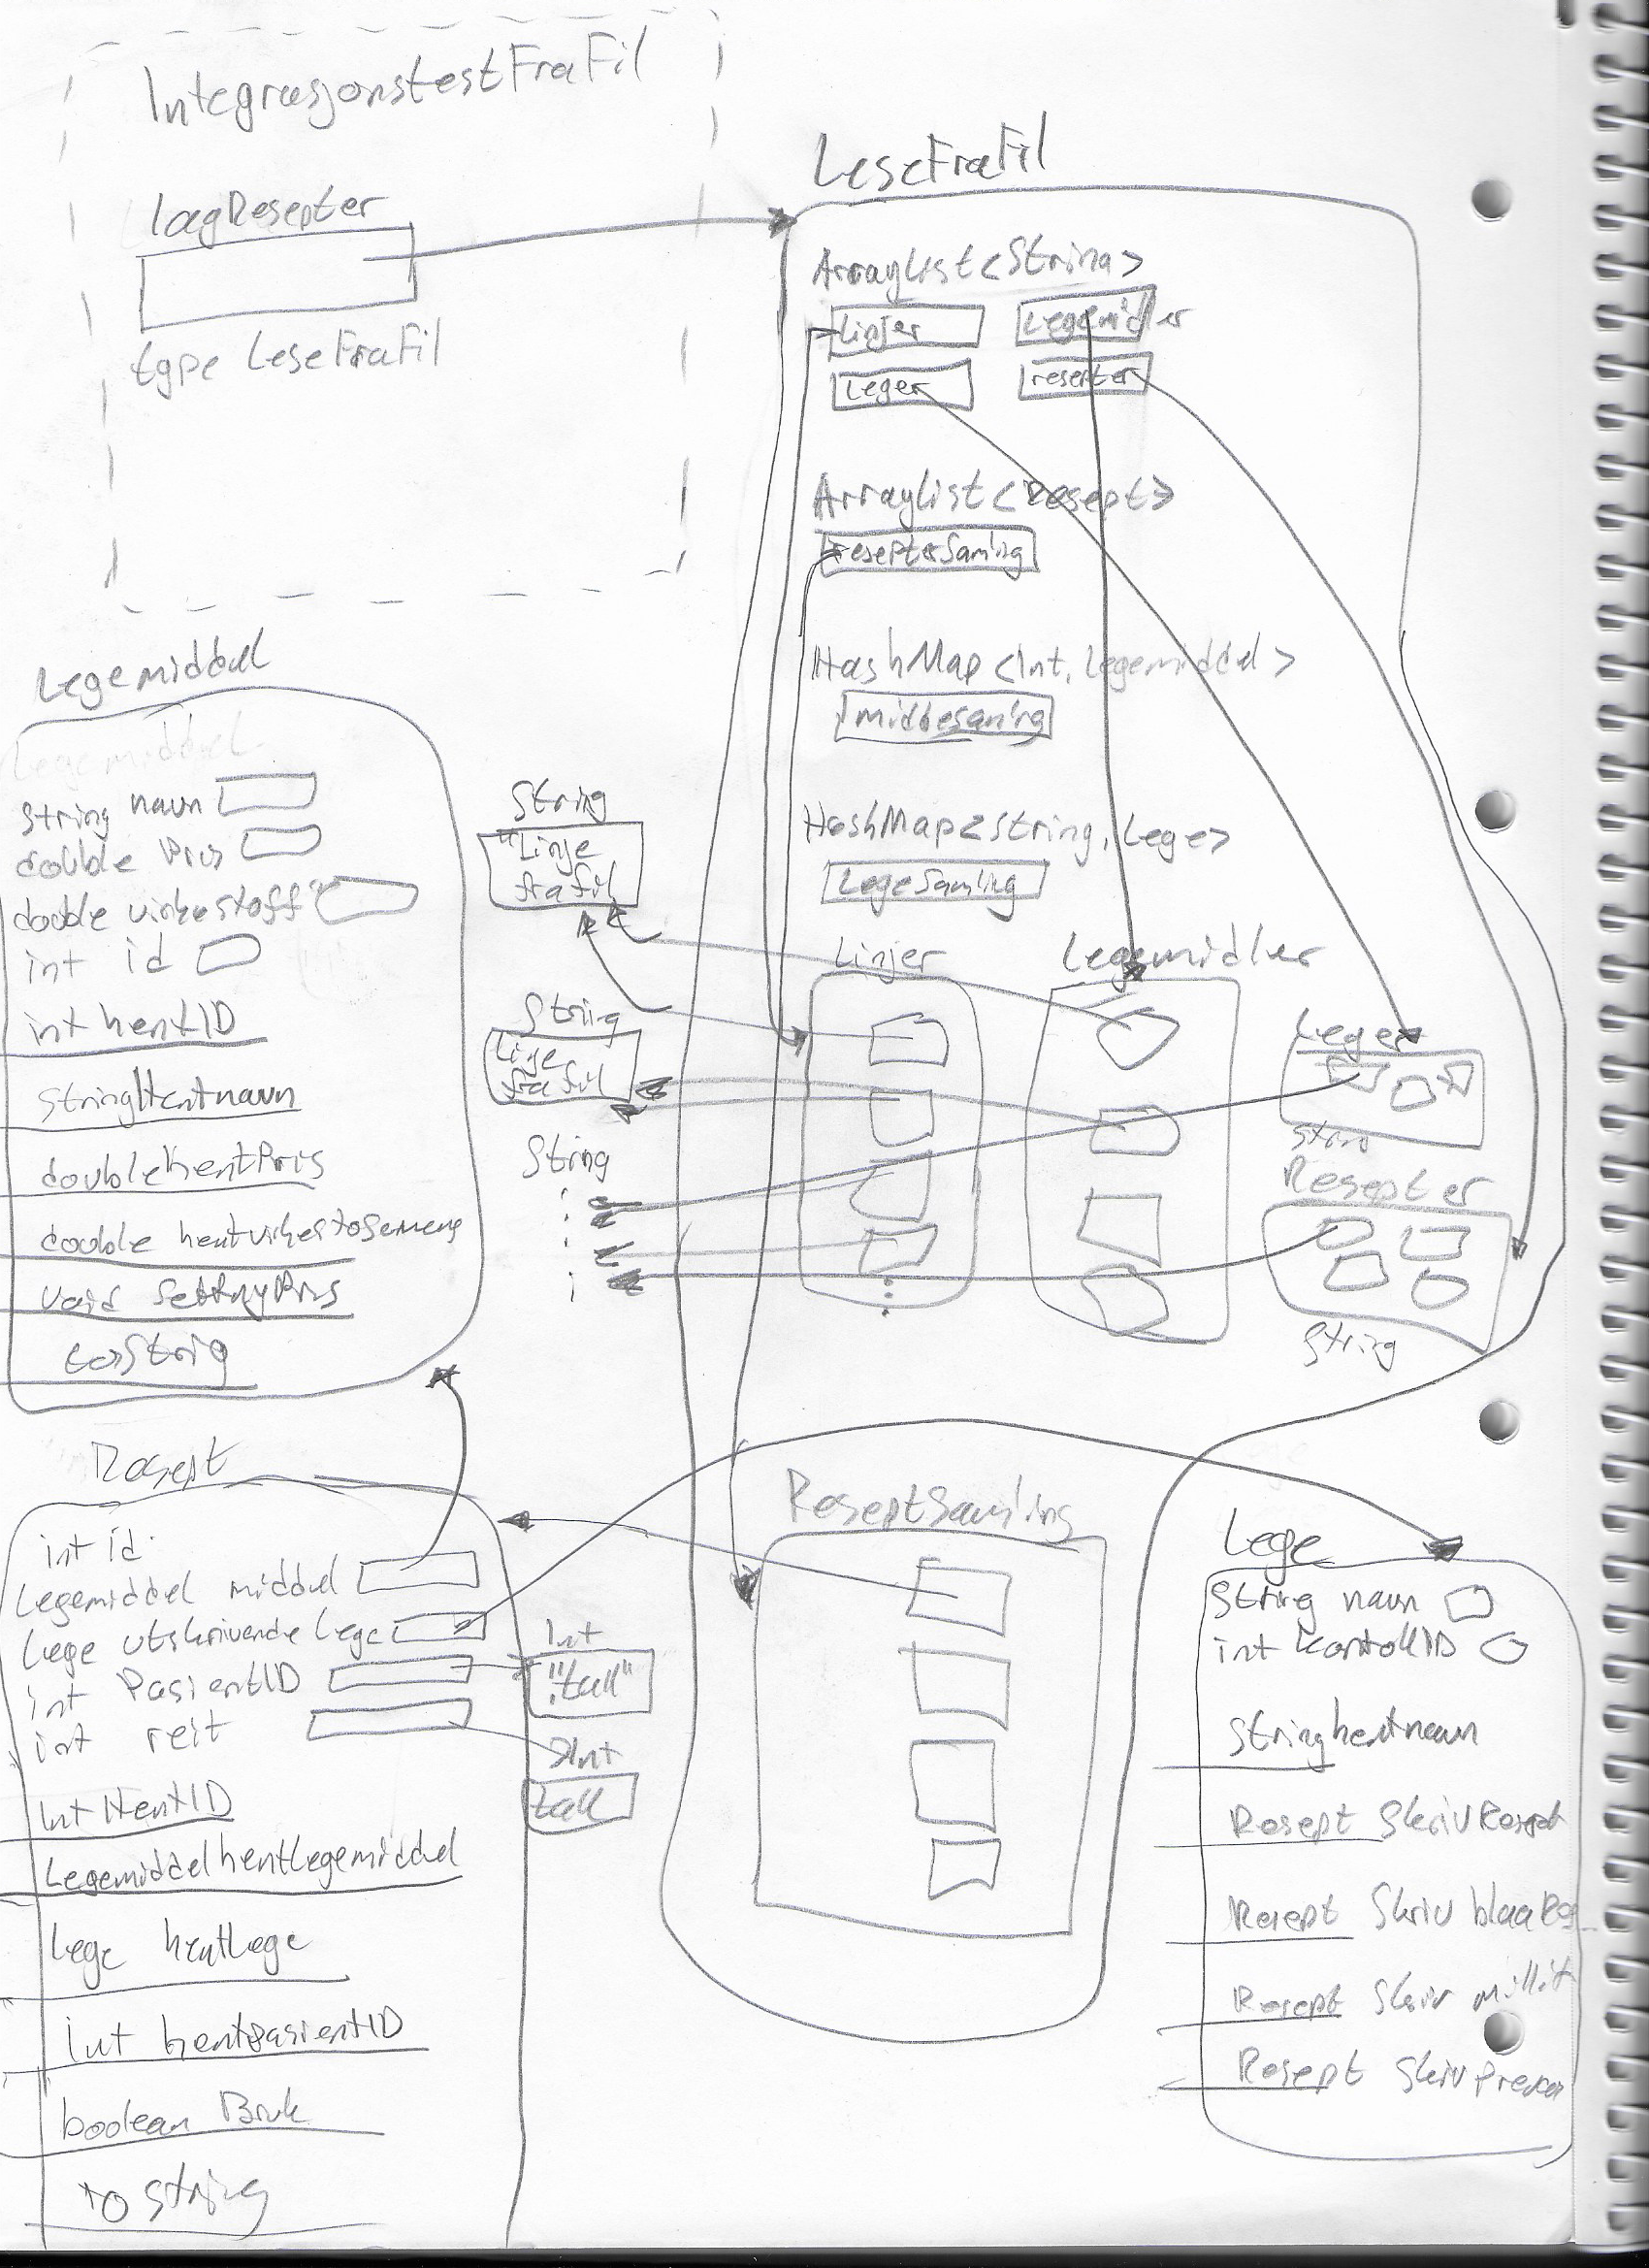 IntegrasjonstestFraFil
lagResepter
type LeseFraFil
LeseFraFil
ArrayList<String>
Linjer
Legemidler
Leger
resepter
ArrayList<Resept>
HashMap<Int, Legemiddel>
HashMap<String, Lege>
LegeSamling
Legemiddel
Legemiddel
String navn
double Pris
double virkestoff
int id
int hentID
String Hentnavn
double hentPris
void SettNyPris
String
"Linje
fra fil
String
Linje
fra fil
String
Linjer
Legemidler
Leger
String
Resepter
String
Resept
int id
Legemiddel middel
Lege utskrivende Lege
int PasientID
int reit
Int HentID
Legemiddel hentLegemiddel
Lege hentLege
int hentPasientID
boolean Bruk
TO String
Int
"tall"
Int
tall
ReseptSamling
Lege
String navn
String hentnavn
Resept SkrivResept
Resept Skriv
Resept Skriv
Resept Skriv